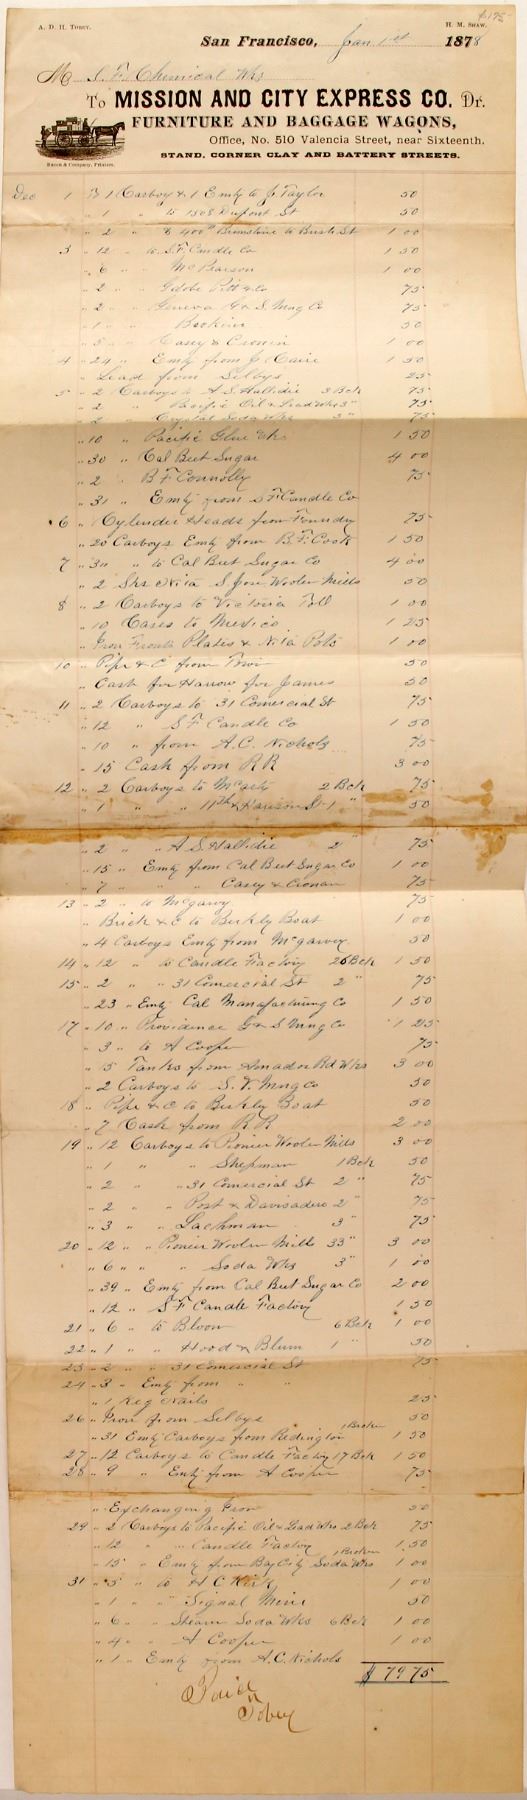 $175-
A. D. H. TOBEY. H. M. SHAW.
San Francisco, Jan 1st 1878
M S. F. Chemical Wks
To MISSION AND CITY EXPRESS CO. Dr.
FURNITURE AND BAGGAGE WAGONS,
Office, No. 510 Valencia Street, near Sixteenth.
STAND, CORNER CLAY AND BATTERY STREETS.
Bacon & Company, Printers.
Dec 1 1 Carboy & 1 Emty to J. Taylor 50
" 1 " to 1508 Dupont St 50
" 2 " & 400# Brimstone to Bush St 1 00
3 " 12 " to S.F. Candle Co 1 50
" 6 " McPearson 1 00
" 2 " Gibbe 75
" 2 " Geneva G & S Mng Co 75
" 1 " 50
" 3 " Casey & Cronin 1 00
4 " 24 " Emty from J. 1 50
" Lead from Selbys 25
5 " 2 Carboys to A. S. Hallidie 3 Bck 75
" 2 " Pacific Oil & Lead Wks 3 " 75
" 2 " Crystal Soda Wks 3 " 75
" 10 " Pacific Glue Wks 1 50
" 30 " Cal Beet Sugar 4 00
" 2 " B F Connolly 75
" 31 " Emty from S F Candle Co
6 " Cylinder Heads from Foundry 75
" 20 Carboys Emty from B. F. Cook 1 50
7 " 30 " to Cal Beet Sugar Co 4 00
" 2 Sks Nita S. Jose Woolen Mills 50
8 " 2 Carboys to Victoria Toll 1 00
" 10 Cases to Mexico 1 25
" Iron Fronts Plates & Nita Pots 1 00
10 " Pipe & C from 50
" Cash for Harrow for James 50
11 " 2 Carboys to 31 Comercial St 75
" 12 " S F Candle Co 1 50
" 10 " from A. C. Nichols 75
" 15 Cask from R R 3 00
12 " 2 Carboys to 2 Bck 75
" 1 " " 11th & Harison St 1 " 50
" 2 " " A S Hallidie 2 " 75
" 15 " Emty from Cal Beet Sugar Co 1 00
" 7 " " " Casey & Cronan 75
13 " 2 " to McGarvy 75
" Brick & C to Berkly Boat 1 00
" 4 Carboys Emty from McGarvey 50
14 " 12 " to Candle Factory 26 Bck 1 50
15 " 2 " " 31 Comercial St 2 " 75
" 23 " Emty Cal Manufacturing Co 1 50
17 " 10 " Providence G & S Mng Co 1 25
" 3 " to A Cooper 75
" 15 Tanks from Amador Rd Wks 3 00
" 2 Carboys to S. V. Mng Co 50
18 " Pipe & C to Berkly Boat 50
" 7 Cask from R R 2 00
19 " 12 Carboys to Pioneer Woolen Mills 3 00
" 1 " " Shepman 1 Bck 50
" 2 " " 31 Comercial St 2 " 75
" 2 " " Post & Davisadero 2 " 75
" 3 " " Lachman 3 " 75
20 " 12 " " Pioneer Woolen Mills 33 " 3 00
" 6 " " Soda Wks 3 " 1 00
" 39 " Emty from Cal Beet Sugar Co 2 00
" 12 " S F Candle Factory 1 50
21 " 6 " to Bloom 6 Bck 1 00
22 " 1 " " Hood & Blum 1 " 50
23 " 2 " " 31 Comercial St 75
24 " 3 " Emty from " "
" 1 Keg Nails 25
26 " Iron from Selbys 50
" 31 Emty Carboys from Redington 1 Broken 1 50
27 " 12 Carboys to Candle Factory 17 Bck 1 50
28 " 9 " Emty from A Cooper 75
" Exchanging Iron 50
29 " 2 Carboys to Pacific Oil & Lead Wks 2 Bck 75
" 12 " " Candle Factory 1.50
" 15 " Emty from Bay City Soda Wks 1 Broken 1 00
31 " 5 " to H C Kirk 1 00
" 1 " " Signal Mine 50
" 6 " " Steam Soda Wks 6 Bck 1 00
" 4 " " A Cooper 1 00
" 1 " Emty from A. C. Nichols
$ 79 75
Paid
Tobey